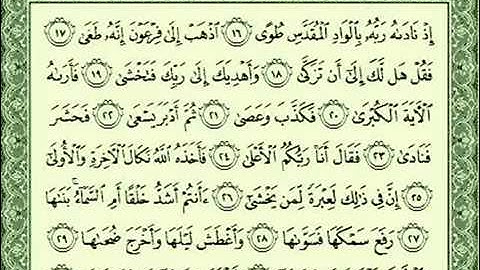 إِذْ نَادَىٰهُ رَبُّهُۥ بِٱلْوَادِ ٱلْمُقَدَّسِ طُوًى ١٦ ٱذْهَبْ إِلَىٰ فِرْعَوْنَ إِنَّهُۥ طَغَىٰ ١٧
فَقُلْ هَل لَّكَ إِلَىٰٓ أَن تَزَكَّىٰ ١٨ وَأَهْدِيَكَ إِلَىٰ رَبِّكَ فَتَخْشَىٰ ١٩ فَأَرَىٰهُ
ٱلْءَايَةَ ٱلْكُبْرَىٰ ٢٠ فَكَذَّبَ وَعَصَىٰ ٢١ ثُمَّ أَدْبَرَ يَسْعَىٰ ٢٢ فَحَشَرَ
فَنَادَىٰ ٢٣ فَقَالَ أَنَا۠ رَبُّكُمُ ٱلْأَعْلَىٰ ٢٤ فَأَخَذَهُ ٱللَّهُ نَكَالَ ٱلْءَاخِرَةِ وَٱلْأُولَىٰٓ
٢٥ إِنَّ فِى ذَٰلِكَ لَعِبْرَةً لِّمَن يَخْشَىٰٓ ٢٦ ءَأَنتُمْ أَشَدُّ خَلْقًا أَمِ ٱلسَّمَآءُ ۚ بَنَىٰهَا
٢٧ رَفَعَ سَمْكَهَا فَسَوَّىٰهَا ٢٨ وَأَغْطَشَ لَيْلَهَا وَأَخْرَجَ ضُحَىٰهَا ٢٩